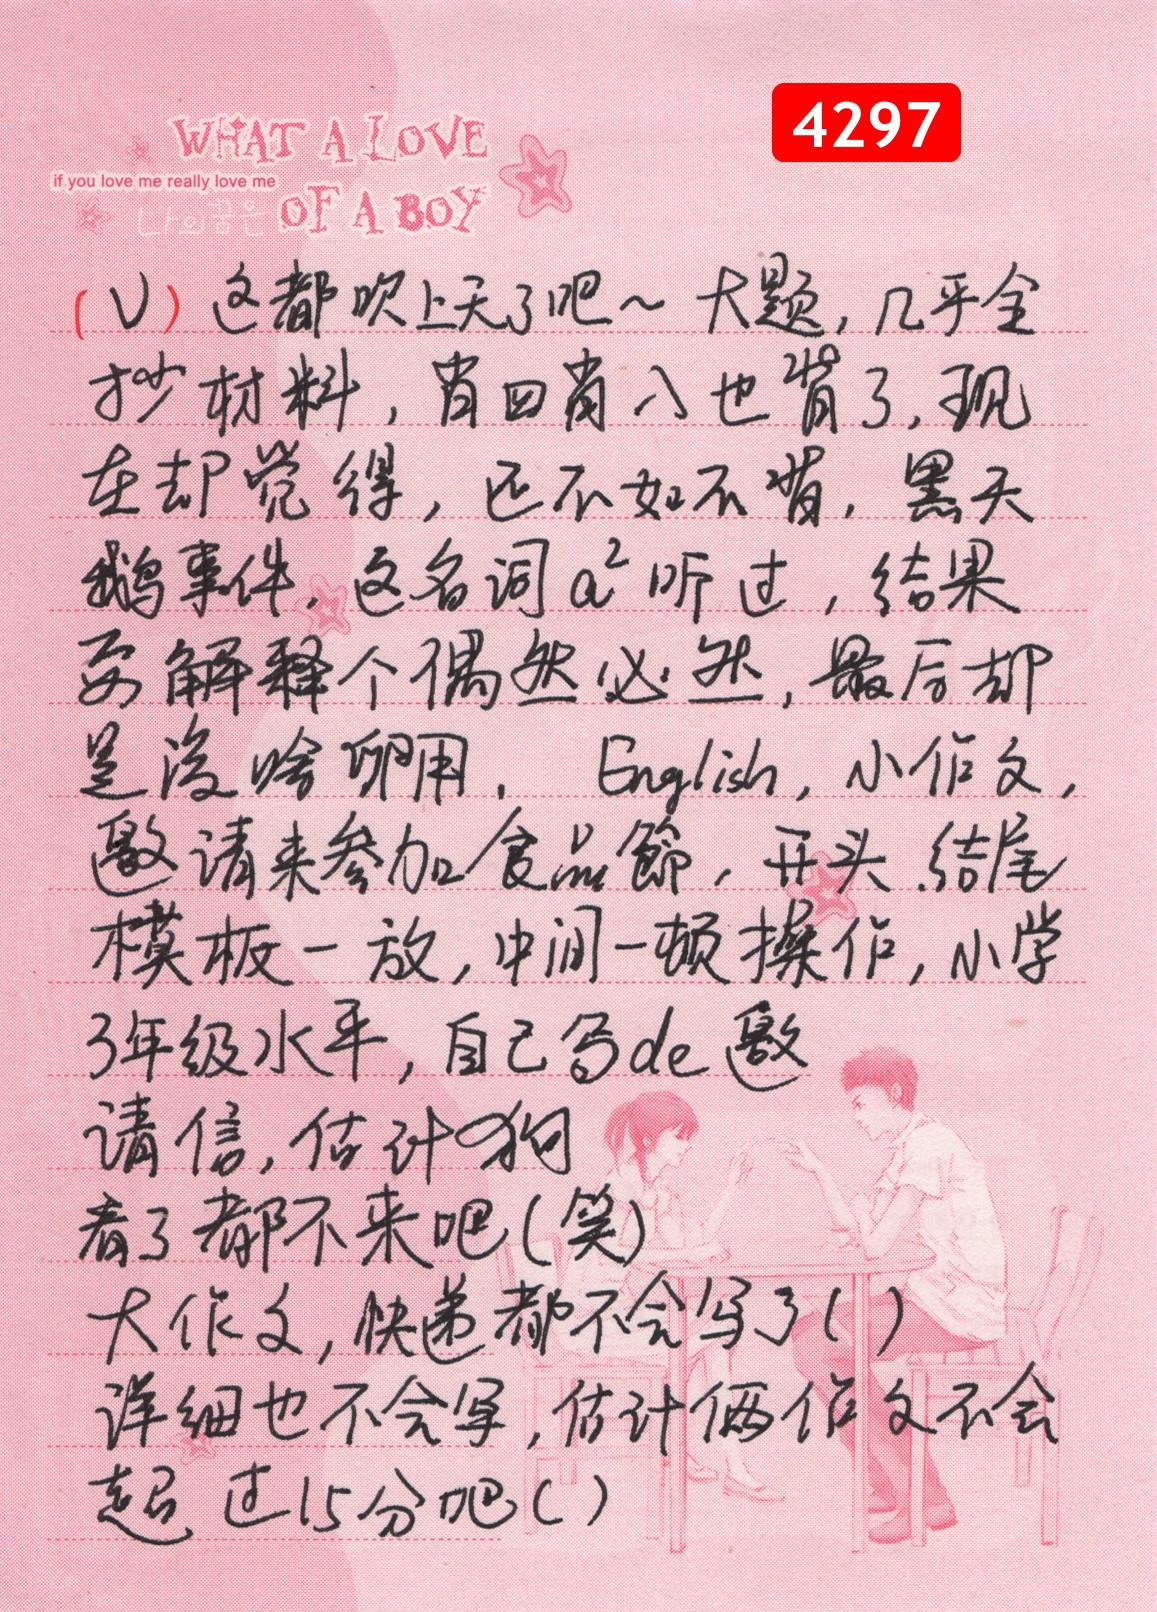 4297
WHAT A LOVE
if you love me really love me
나의꿈은 OF A BOY
(V) 这都吹上天了吧～大题，几乎全
抄材料，肖四肖八也背了，现
在却觉得，还不如不背，黑天
鹅事件，这名词a²听过，结果
要解释个偶然必然，最后却
是没啥卵用． English，小作文，
邀请来参加食品節，开头结尾
模板一放，中间一顿操作，小学
3年级水平，自己写de邀
请信，估计狗
看了都不来吧(笑)
大作文，快递都不会写了( )
详细也不会写，估计俩作文不会
超过15分吧( )